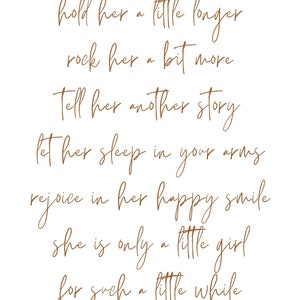 hold her a little longer
rock her a bit more
tell her another story
let her sleep in your arms
rejoice in her happy smile
she is only a little girl
for such a little while